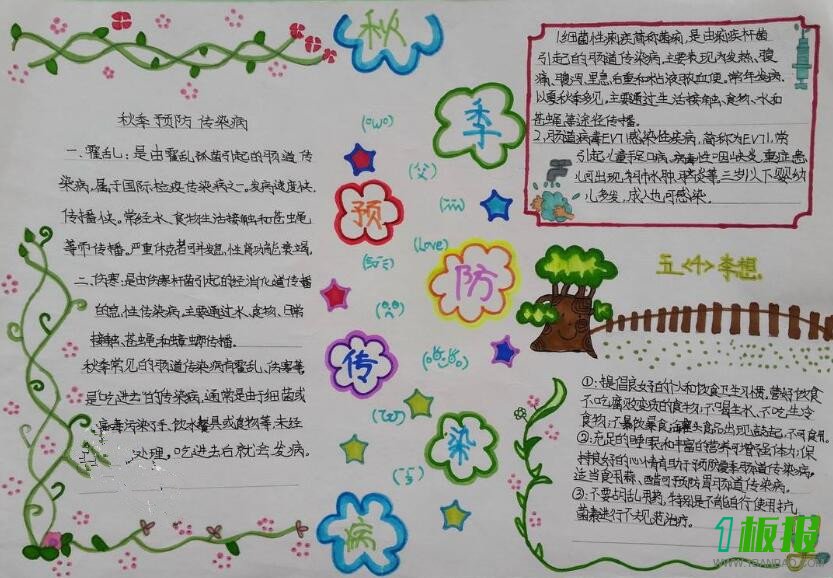 秋
季
预
防
传
染
病
秋季预防传染病
一、霍乱:是由霍乱弧菌引起的肠道传
染病,属于国际检疫传染病之一。发病速度快.
传播快。常经水、食物生活接触和苍蝇
等而传播。严重休克者可并发急性肾功能衰竭。
二、伤寒:是由伤寒杆菌引起的经消化道传播
的急性传染病,主要通过水、食物、日常
接触、苍蝇和蟑螂传播.
秋季常见的肠道传染病有霍乱、伤寒等
是"吃进去"的传染病,通常是由于细菌或
病毒污染手、饮水餐具或食物等,未经
处理。吃进去后就会发病。
(OωO)
(父)
(Love)
1.细菌性痢疾简称菌痢,是由痢疾杆菌
引起的肠道传染病.主要表现为发热、腹
痛、腹泻、里急后重和粘液脓血便。常年发病.
以夏秋季多见.主要通过生活接触、食物、水和
苍蝇等途径传播.
2.肠道病毒EV71感染性疾病,简称为EV71,常
引起儿童手足口病、病毒性咽峡炎,重症患
儿可出现 肺水肿、脑炎等,三岁以下婴幼
儿多发,成人也可感染.
五<4>李想
①:提倡良好的个人和饮食卫生习惯,营好饮食
不吃腐败变质的食物;不喝生水、不吃生冷
食物;不暴饮暴食;罐头食品出现鼓起,不可食用.
②:充足的睡眠和丰富的营养可增强体力;保
持良好的心情有助于预防夏季肠道传染病.
适当食用蒜、醋可预防胃肠道传染病.
③:不要胡乱用药,特别是不能自行使用抗
菌素进行不规范治疗.
1板报
WWW.1BANBAO.COM